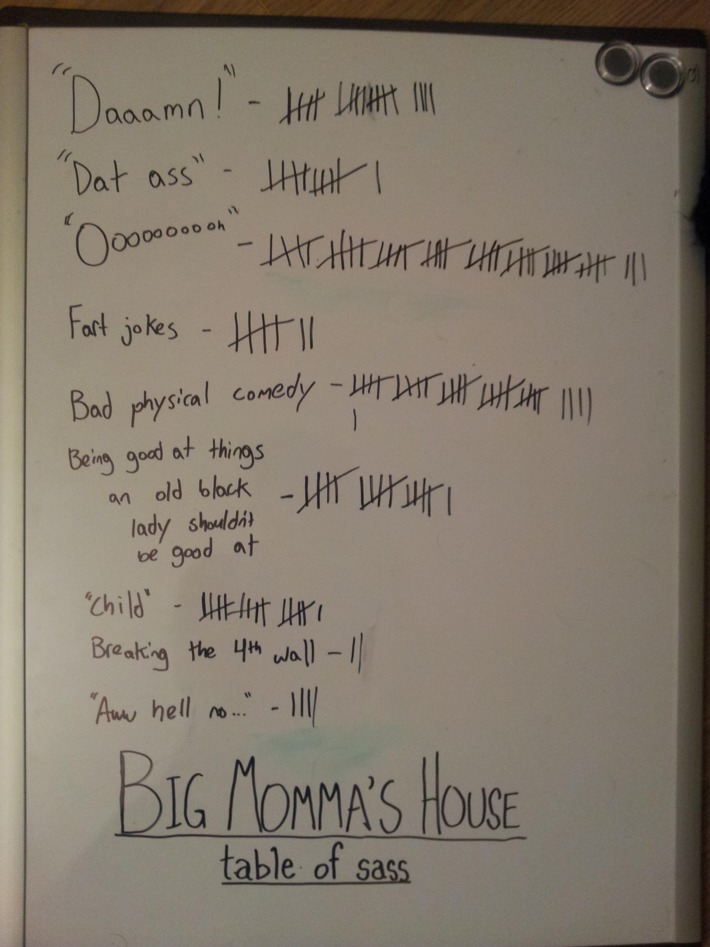 "Daaamn!" -
"Dat ass" -
"Oooooooooh" -
Fart jokes -
Bad physical comedy -
Being good at things
an old black -
lady shouldn't
be good at
"Child" -
Breaking the 4th wall -
"Aww hell no..." -
BIG MOMMA'S HOUSE
table of sass